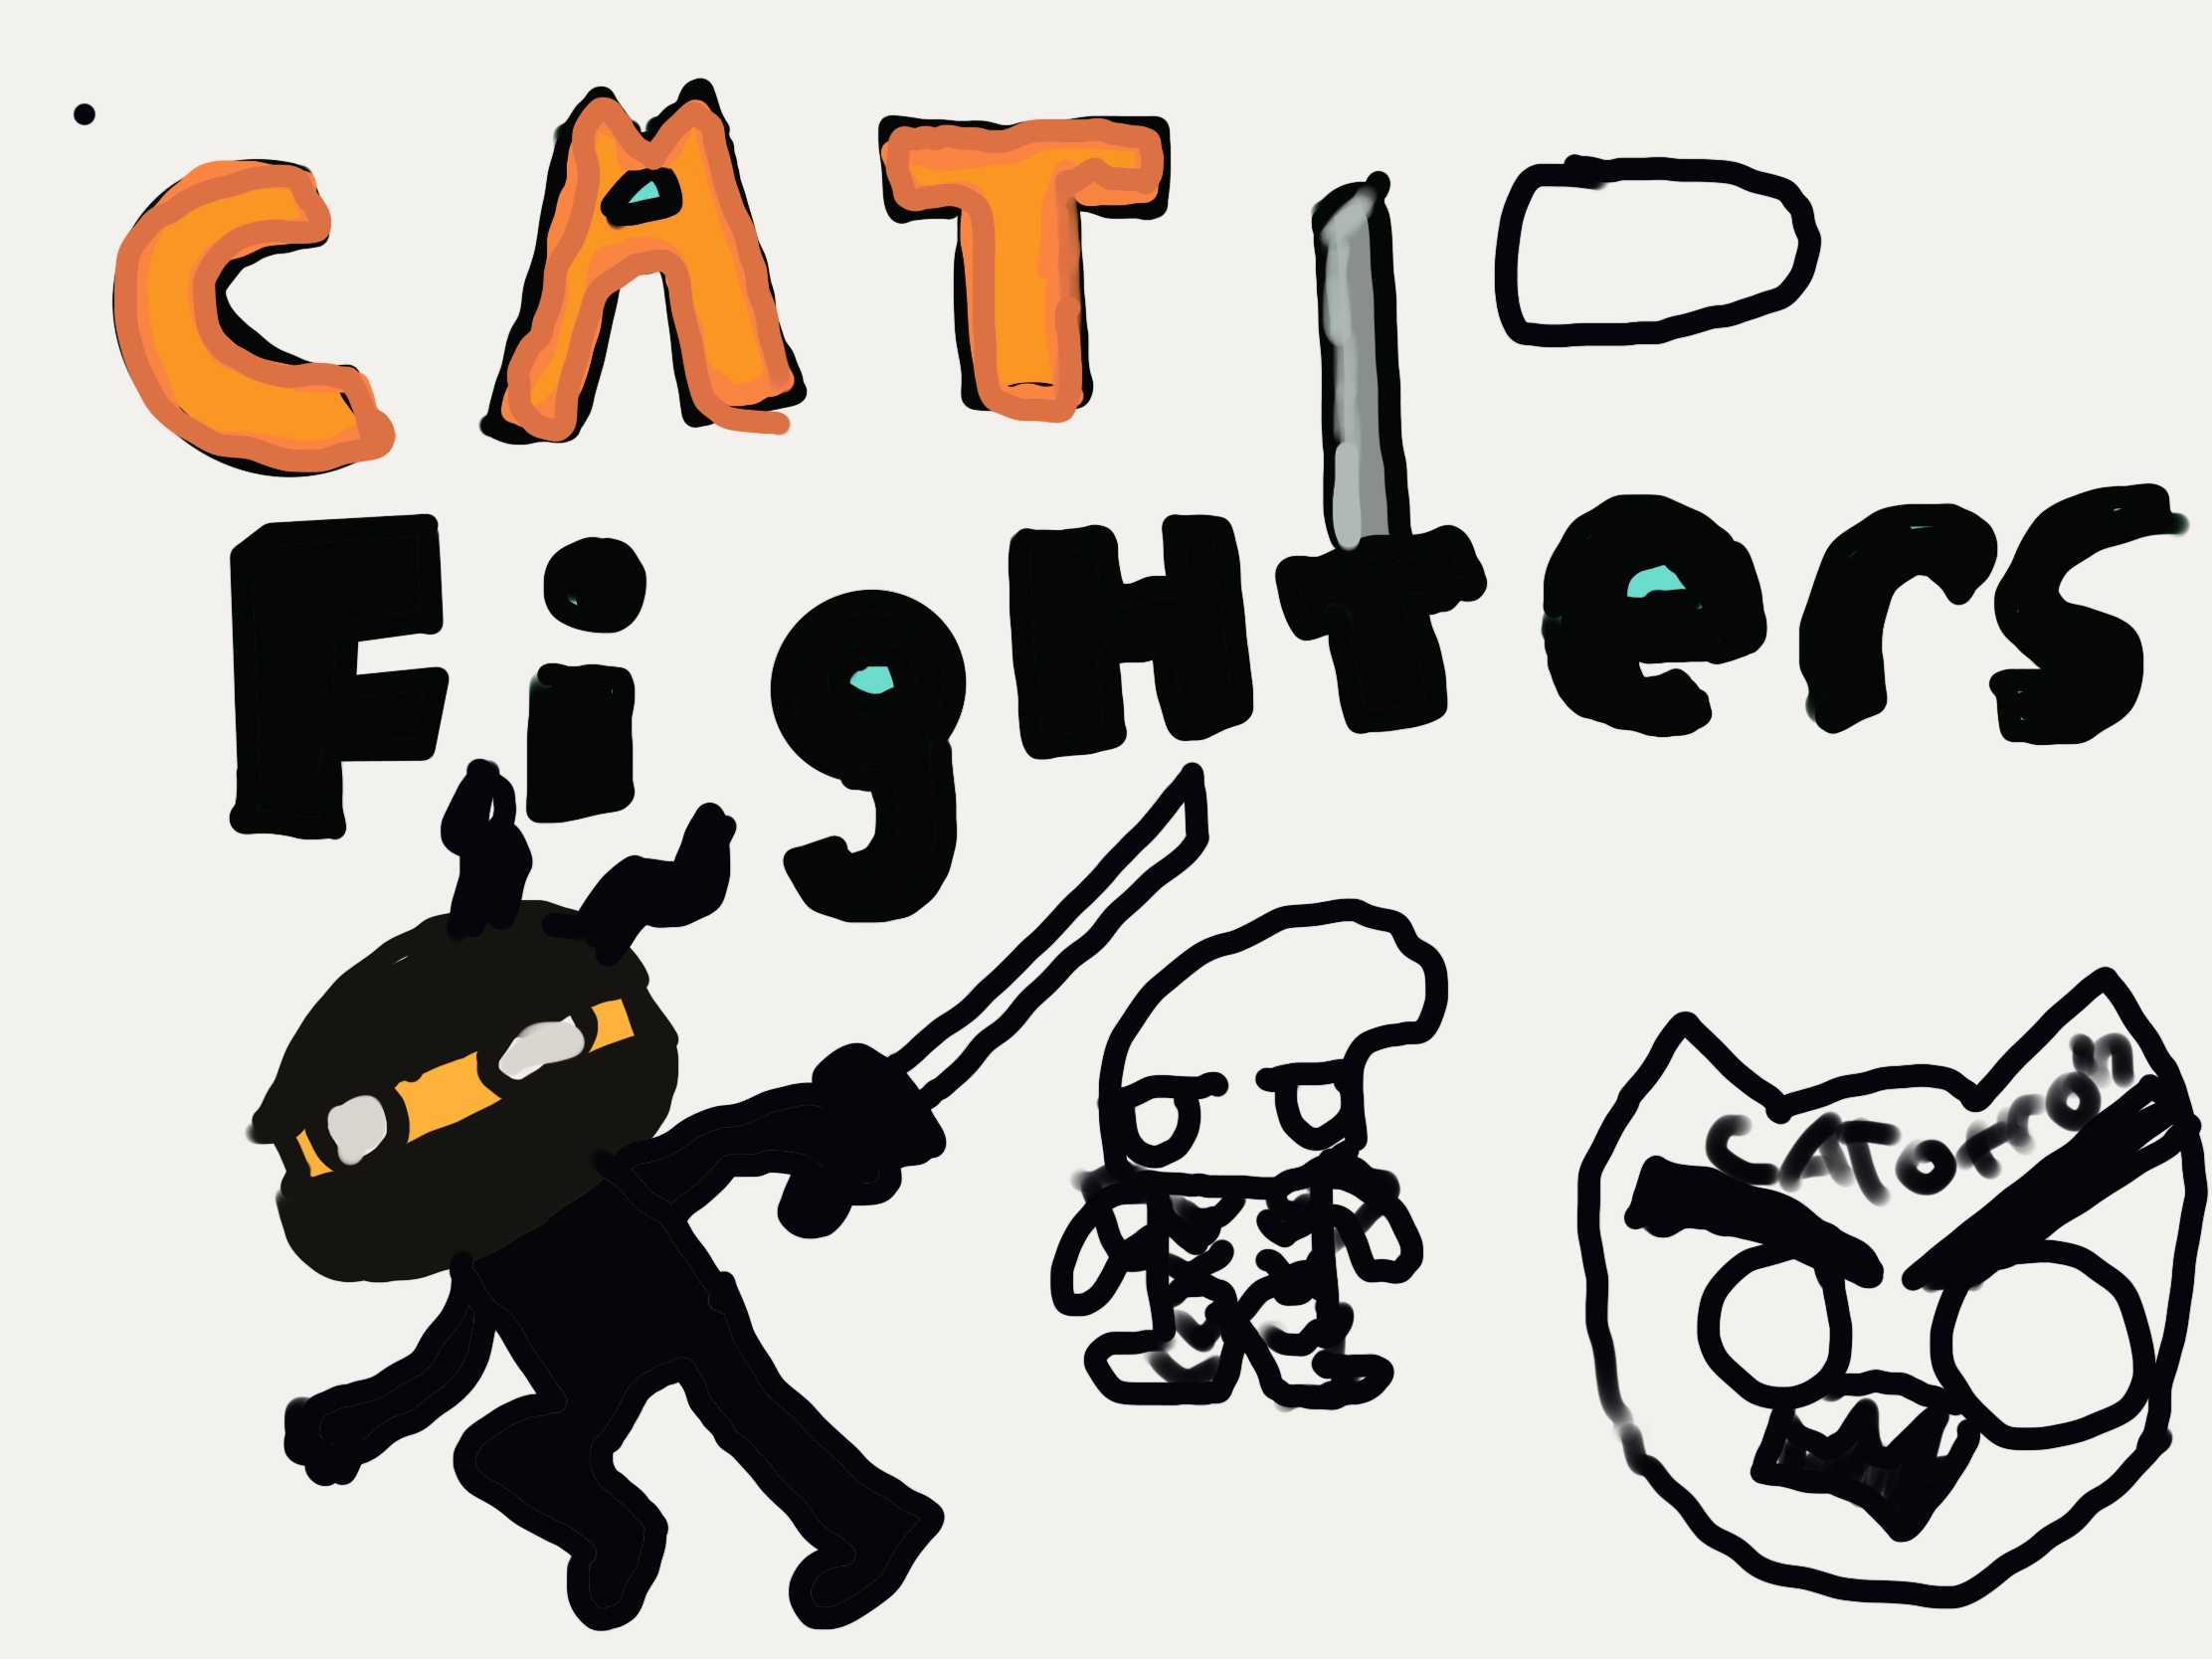 CAT
FigHters
CATotron